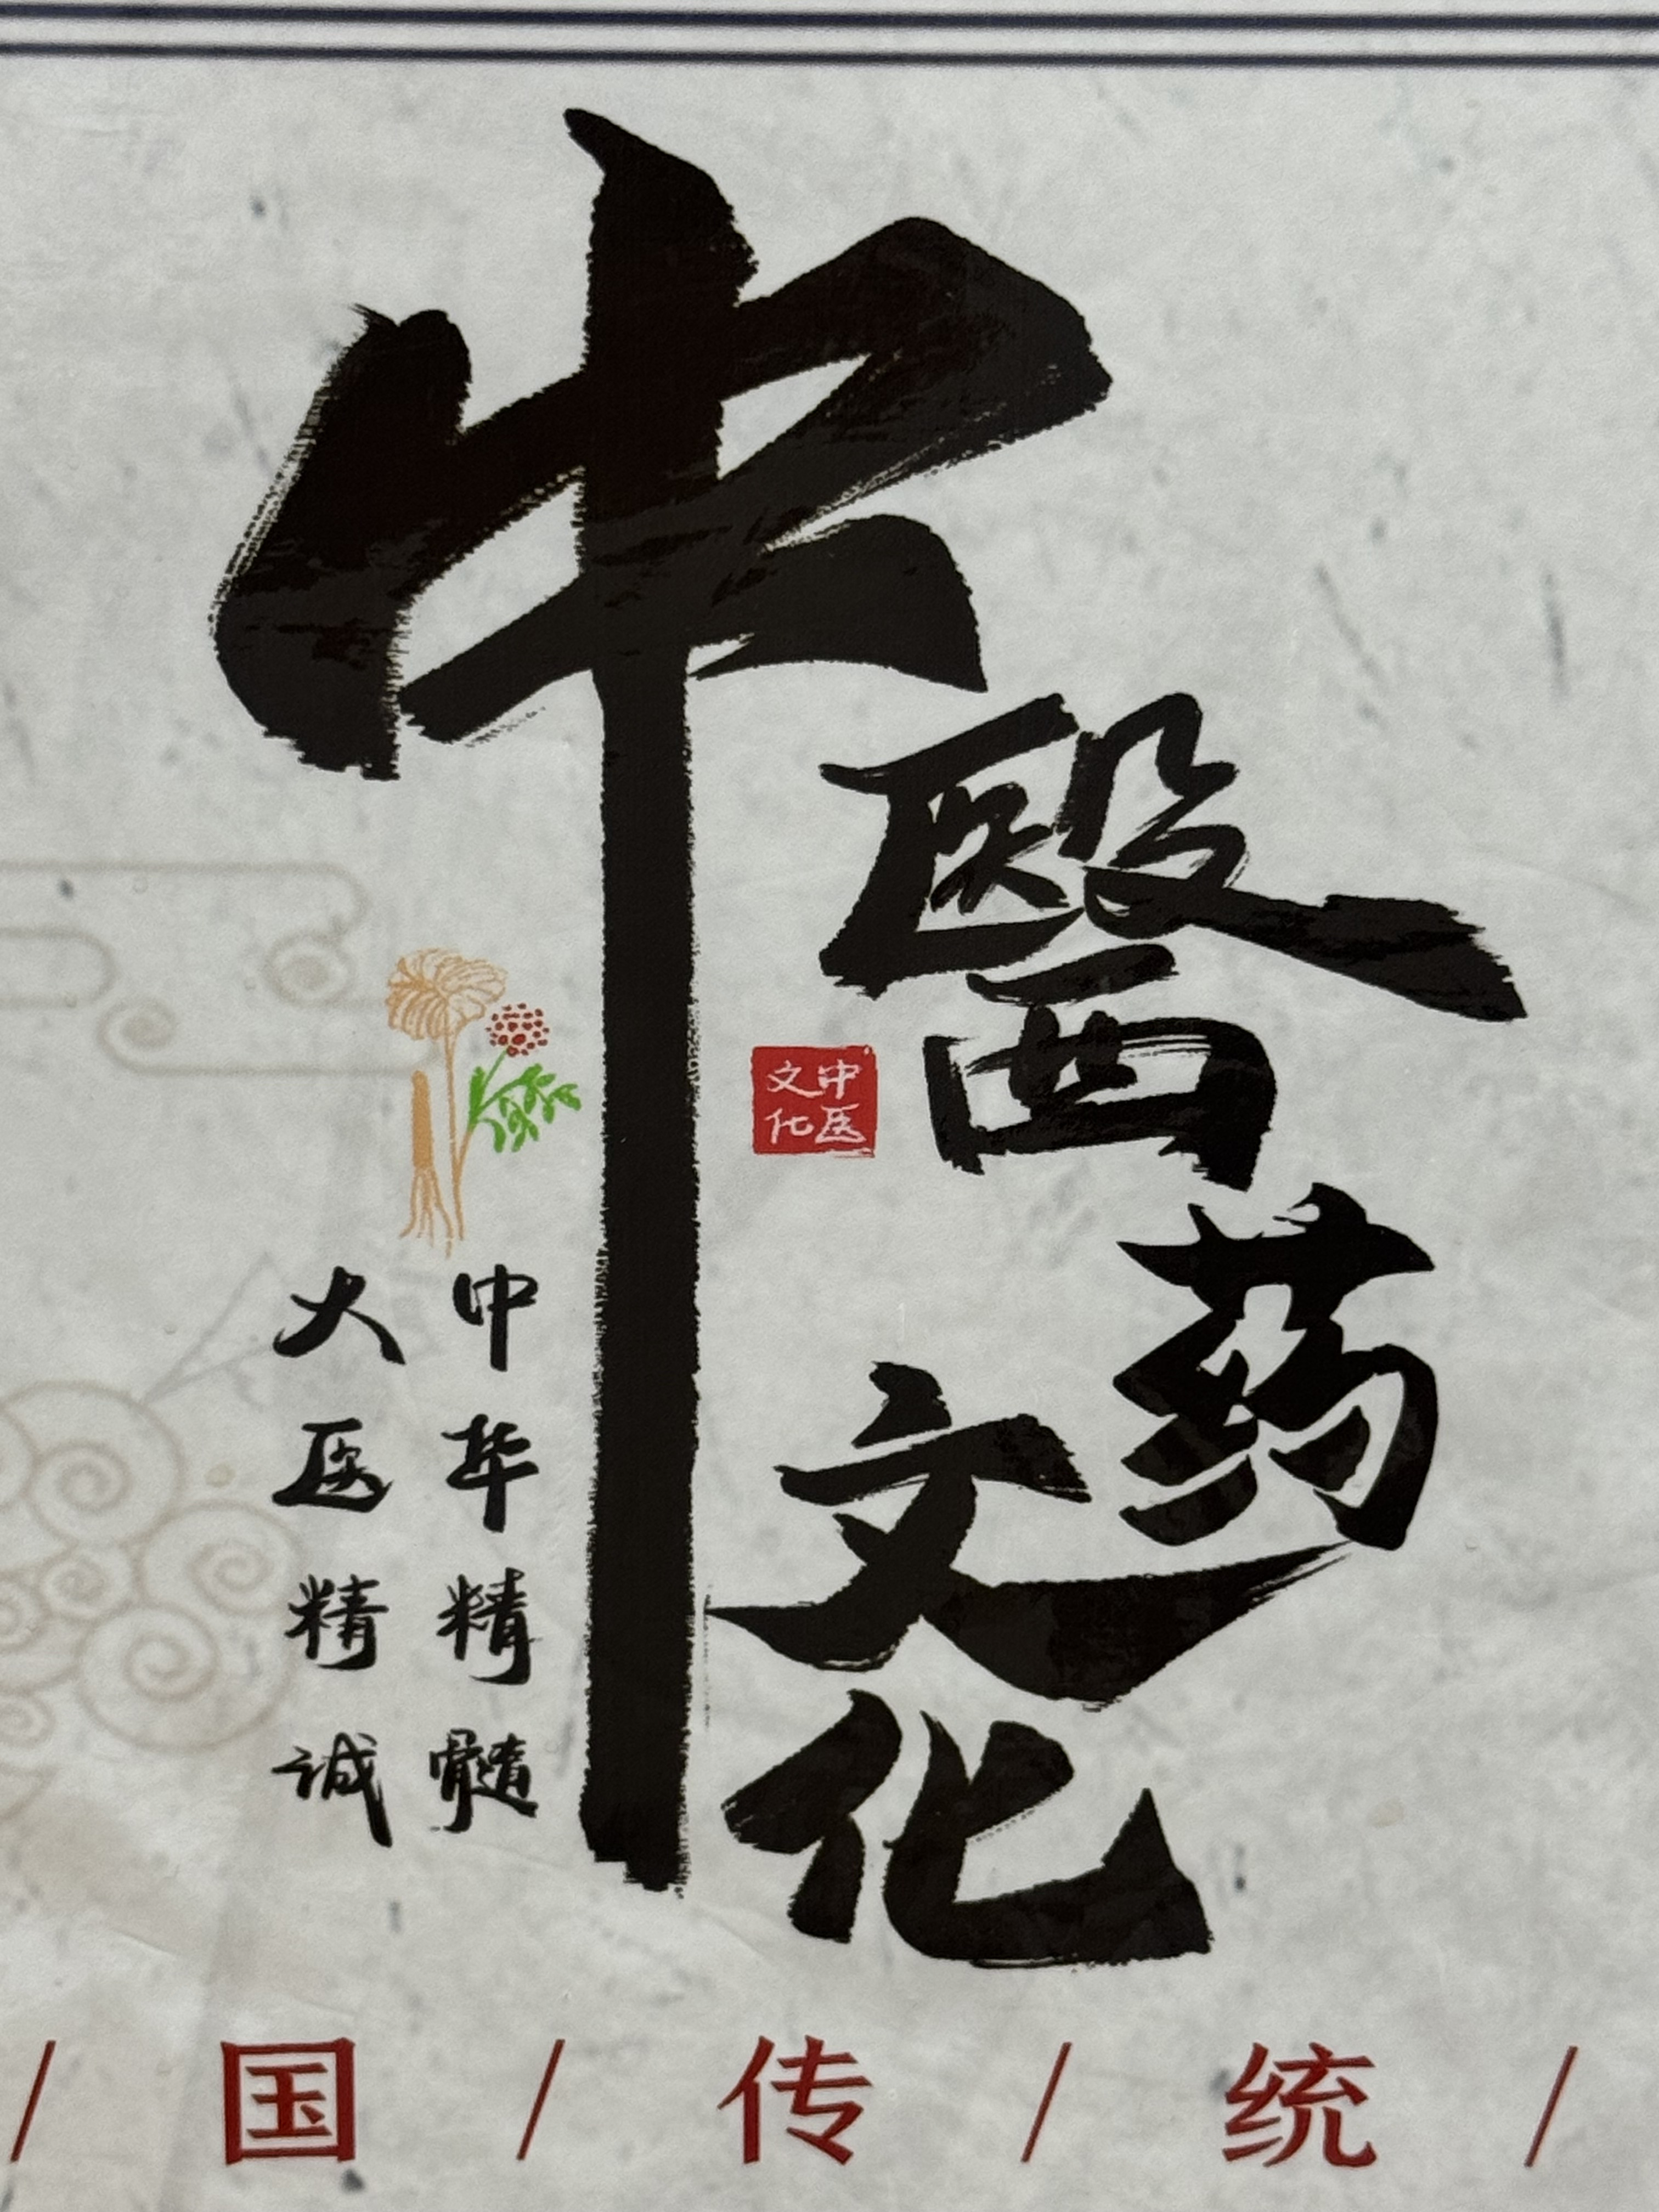 中醫药文化
中医
文化
中华精髓
大医精诚
/ 国 / 传 / 统 /